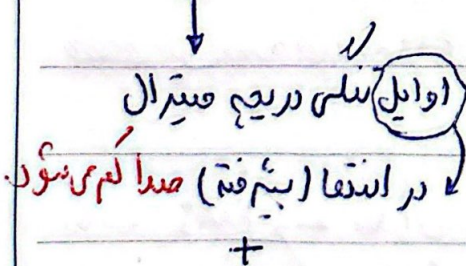 اوایل تنگی دریچه میترال
در انتها (پیشرفته) صدا کم می‌شود.
+